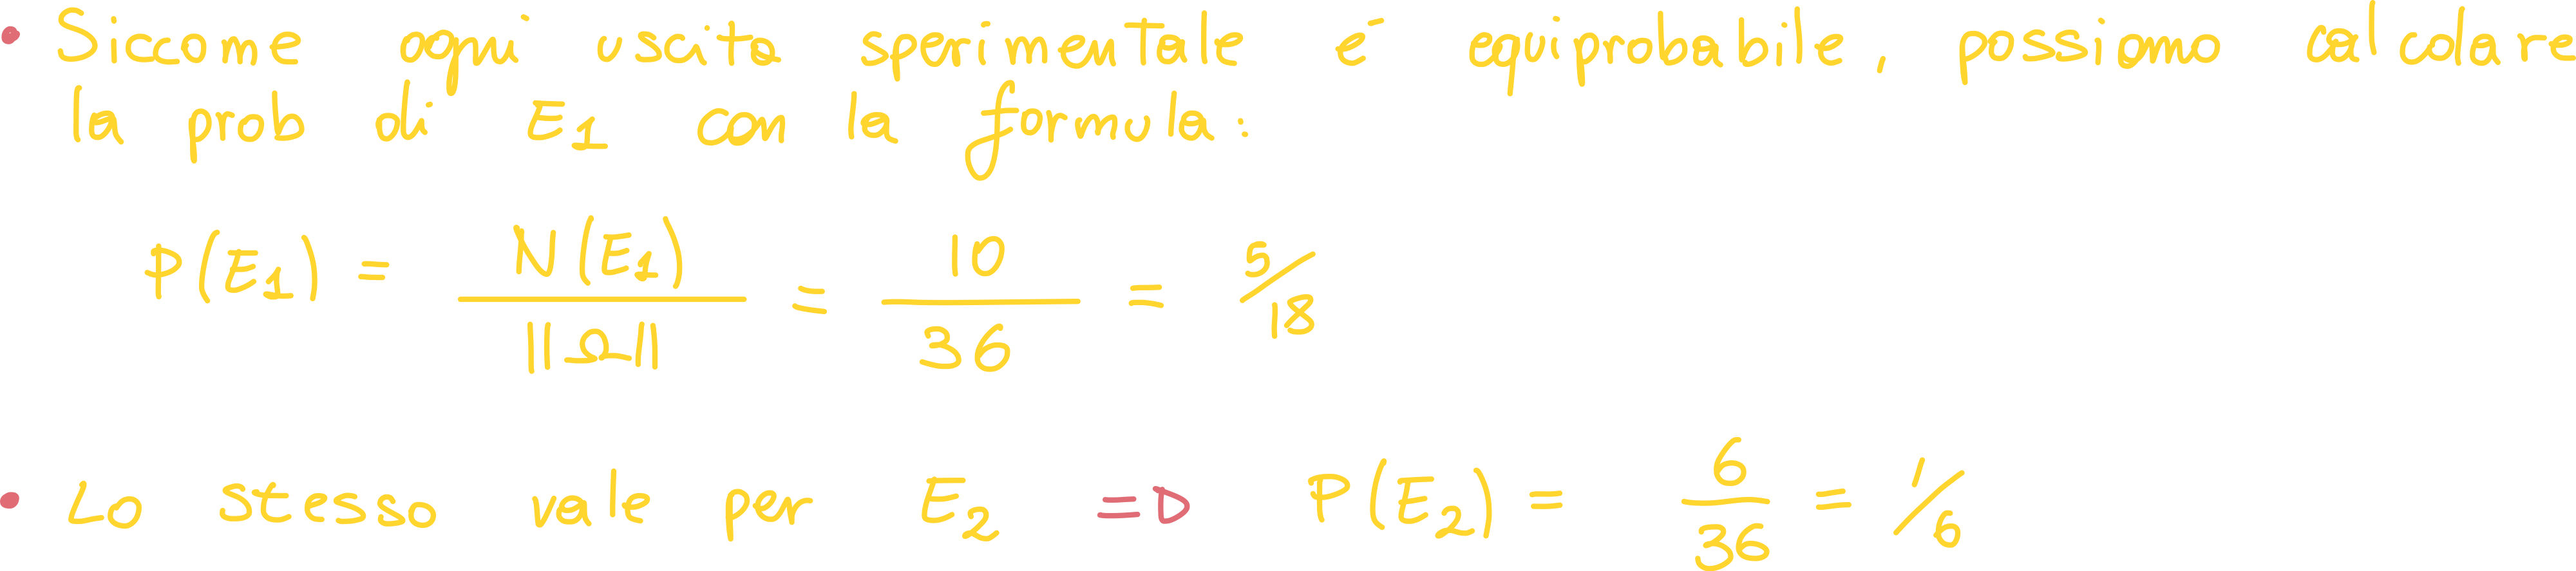 • Siccome ogni uscita sperimentale é equiprobabile, possiamo calcolare
la prob di E1 con la formula:
P(E1) = N(E1) / ||Ω|| = 10 / 36 = 5/18
• Lo stesso vale per E2 => P(E2) = 6/36 = 1/6